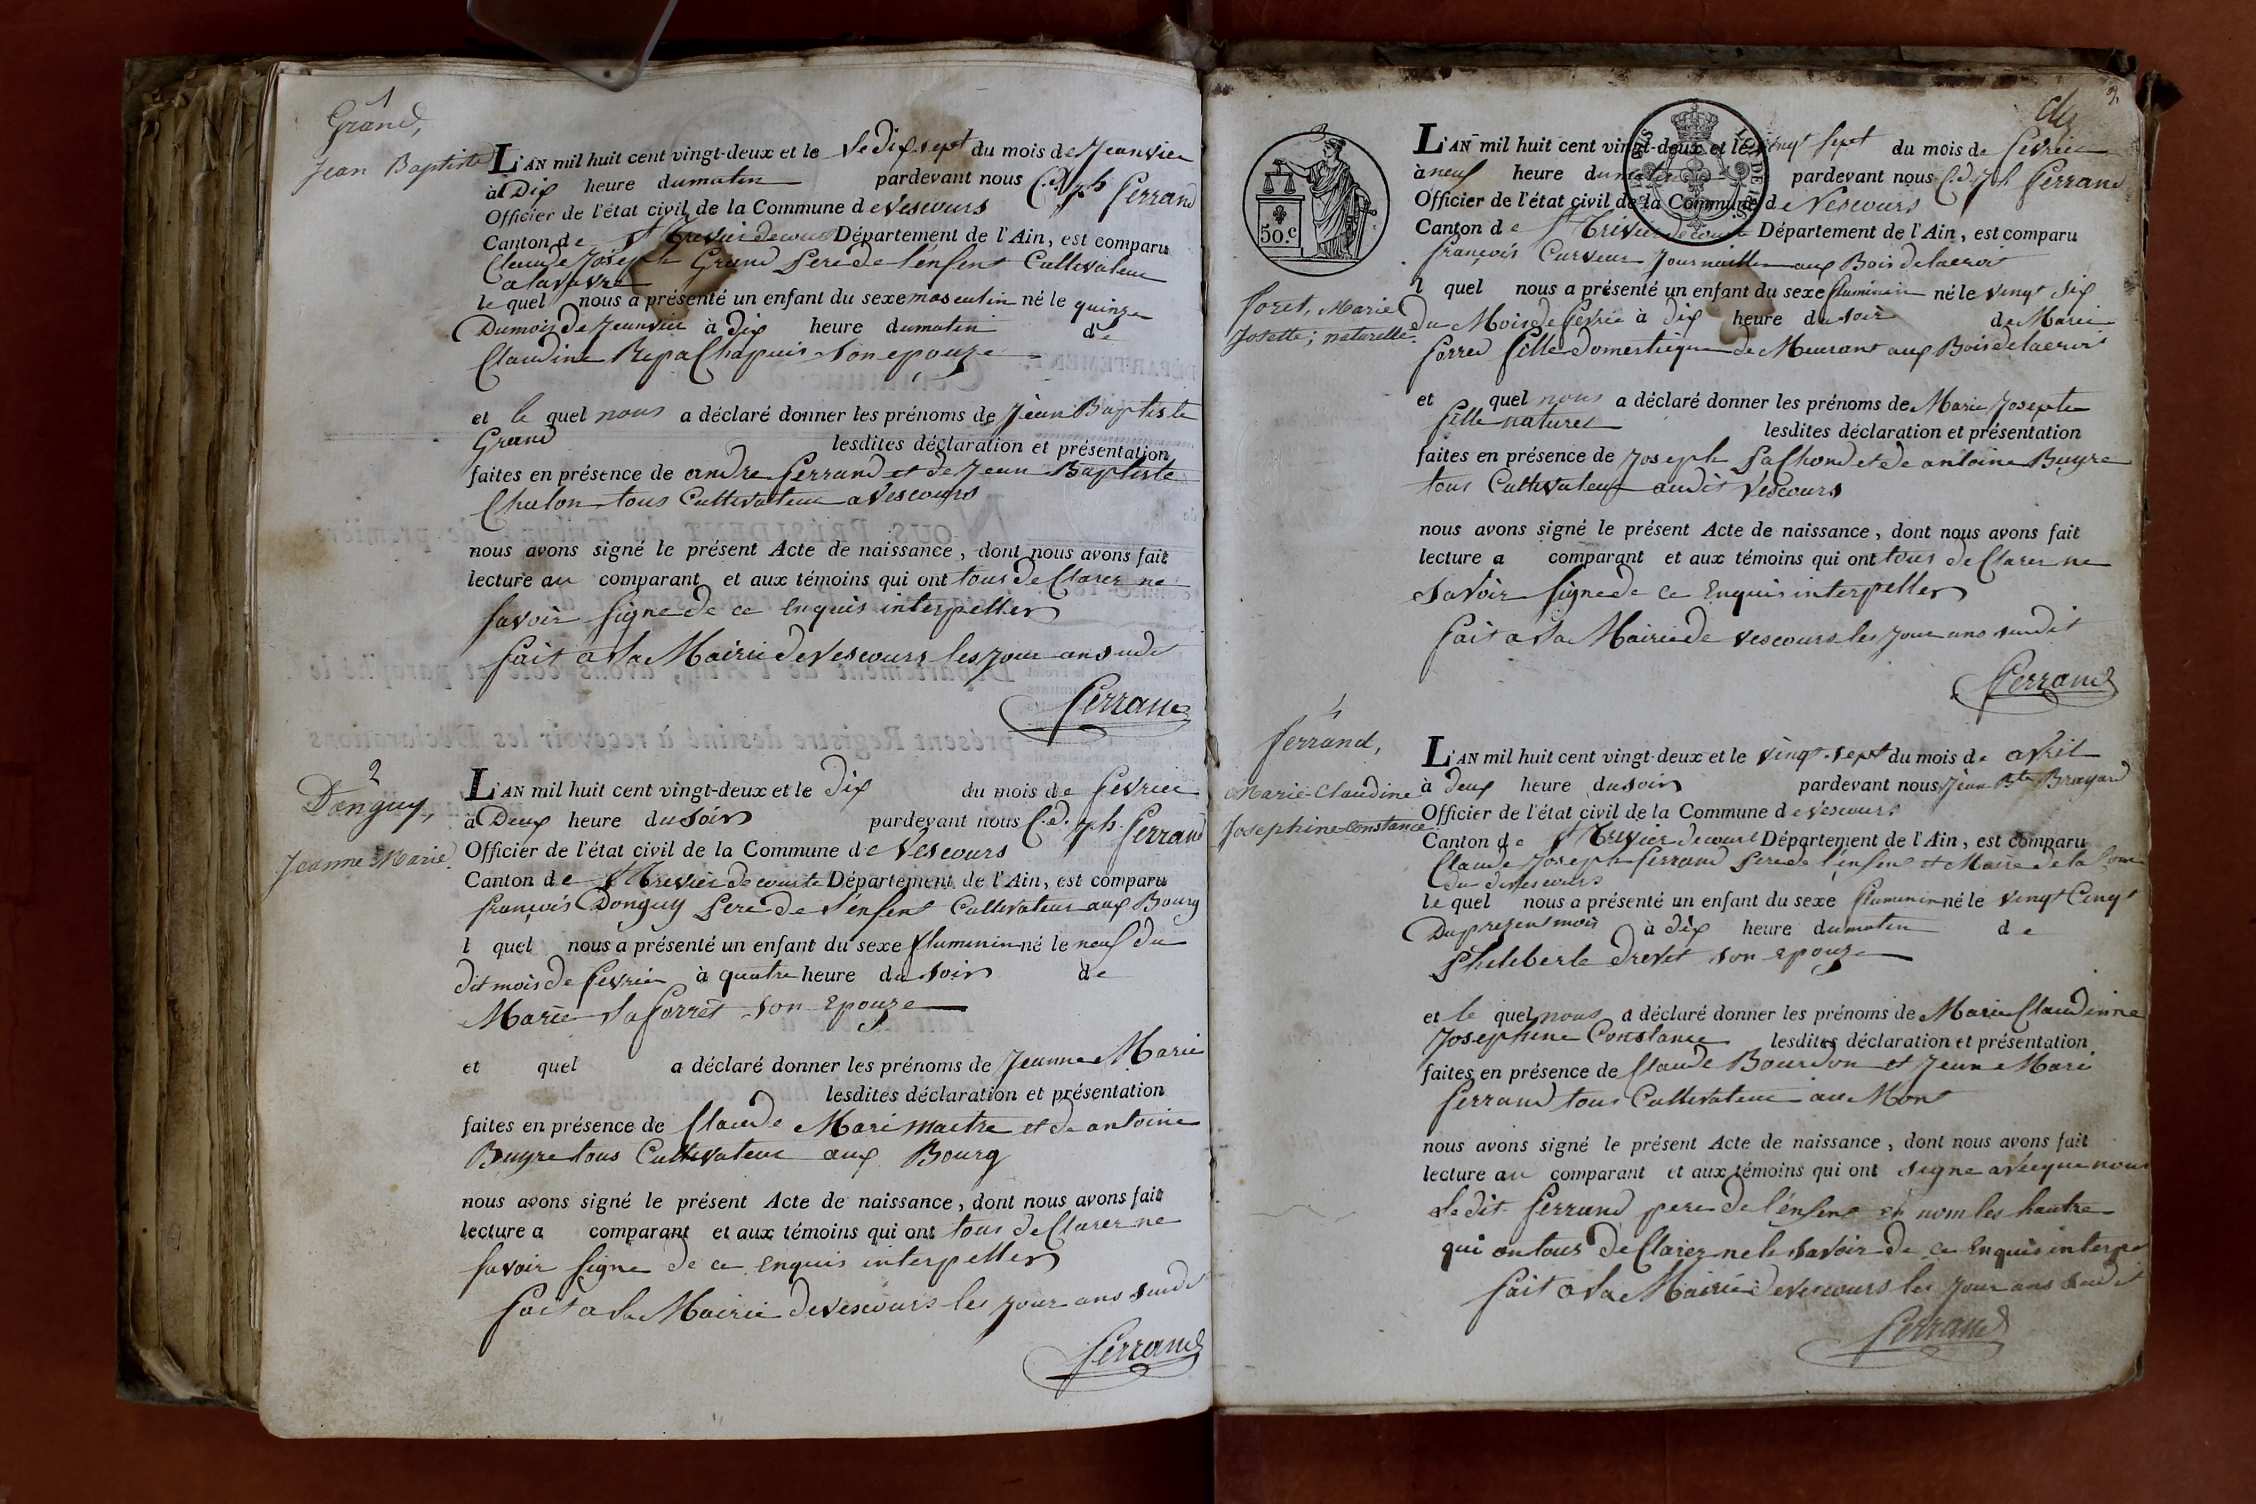 1
Grand,
Jean Baptiste
L'AN mil huit cent vingt-deux et le le dix sept du mois de Jeanvier
à Dix heure du matin pardevant nous C.d. Jph ferrand
Officier de l'état civil de la Commune de vescours
Canton de St Trevier de courte Département de l'Ain, est comparu
Claude Joseph Grand pere de l'enfent Cultivateur
a lavavre
le quel nous a présenté un enfant du sexe masculin né le quinze
Du mois de Jeanvier à dix heure du matin de
Claudine Chapuis son epouze
et le quel nous a déclaré donner les prénoms de Jean Baptiste
Grand lesdites déclaration et présentation
faites en présence de andre ferrand et de Jean Baptiste
Chalon tous Cultivateur a vescours
nous avons signé le présent Acte de naissance, dont nous avons fait
lecture au comparant et aux témoins qui ont tous de Clarer ne
savoir signe de ce enquis interpeller
fait a la Mairie de vescours les jour an sudit
ferrand
2
Donguy,
Jeanne Marie.
L'AN mil huit cent vingt-deux et le dix du mois de fevrier
à Deux heure du soir pardevant nous C.d. jph. ferrand
Officier de l'état civil de la Commune de Vescours
Canton de St Trevier de courte Département de l'Ain, est comparu
françois Donguy pere de l'enfent Cultivateur aux Bourg
l quel nous a présenté un enfant du sexe fluminin né le neuf du
dit mois de fevrier à quatre heure du soir de
Marie La forret son Epouze
et quel a déclaré donner les prénoms de Jeanne Marie
lesdites déclaration et présentation
faites en présence de Claude Mari maitre et de antoine
Buyre tous Cultivateur aux Bourg
nous avons signé le présent Acte de naissance, dont nous avons fait
lecture a comparant et aux témoins qui ont tous de Clarer ne
savoir signe de ce enquis interpeller
fait a la Mairie de vescours les jour ans sudit
ferrand
2
50.c
foret, Marie
Josette; naturelle.
L'AN mil huit cent vingt-deux et le vingt sept du mois de fevrier
à neuf heure du matin pardevant nous C.d. Jh ferrand
Officier de l'état civil de la Commune de Vescours
Canton de St Trevier de courte Département de l'Ain, est comparu
françois Curveur Journaillier aux Bois de lacroix
l quel nous a présenté un enfant du sexe fluminin né le vingt six
du Mois de fevrie à dix heure du soir de Marie
forred fille domestique de Meurant aux Bois de lacroix
et quel nous a déclaré donner les prénoms de Marie Josepte
fille naturel lesdites déclaration et présentation
faites en présence de Joseph paChoud et de antoine Buyre
tous Cultivateur audit Vescours
nous avons signé le présent Acte de naissance, dont nous avons fait
lecture a comparant et aux témoins qui ont tous de Clarer ne
savoir signe de ce Enquis interpeller
fait a la Mairie de vescours les jour ans sudit
ferrand
4
ferrand,
Marie-Claudine
Josephine-constance.
L'AN mil huit cent vingt-deux et le vingt-sept du mois de avril
à deux heure du soir pardevant nous Jean Bte Brayard
Officier de l'état civil de la Commune de vescours
Canton de St Trevier de courte Département de l'Ain, est comparu
Claude Joseph ferrand pere de l'enfent et Maire de la Com
du de vescours
le quel nous a présenté un enfant du sexe fluminin né le vingt Cinqt
Du present mois à dix heure du matin de
Pheleberte drevet son epouze
et le quel nous a déclaré donner les prénoms de Marie Claudinne
Josephine Constance lesdites déclaration et présentation
faites en présence de Claude Bourdon et Jean Mari
ferrand tous Cultivateur au Mont
nous avons signé le présent Acte de naissance, dont nous avons fait
lecture au comparant et aux témoins qui ont signe avecque nous
le dit ferrand pere de l'enfent et nom les hautre
qui on tous de Clarer ne le savoir de ce Enquis interpe
fait a la Mairie de vescours les jour ans sudit
ferrand